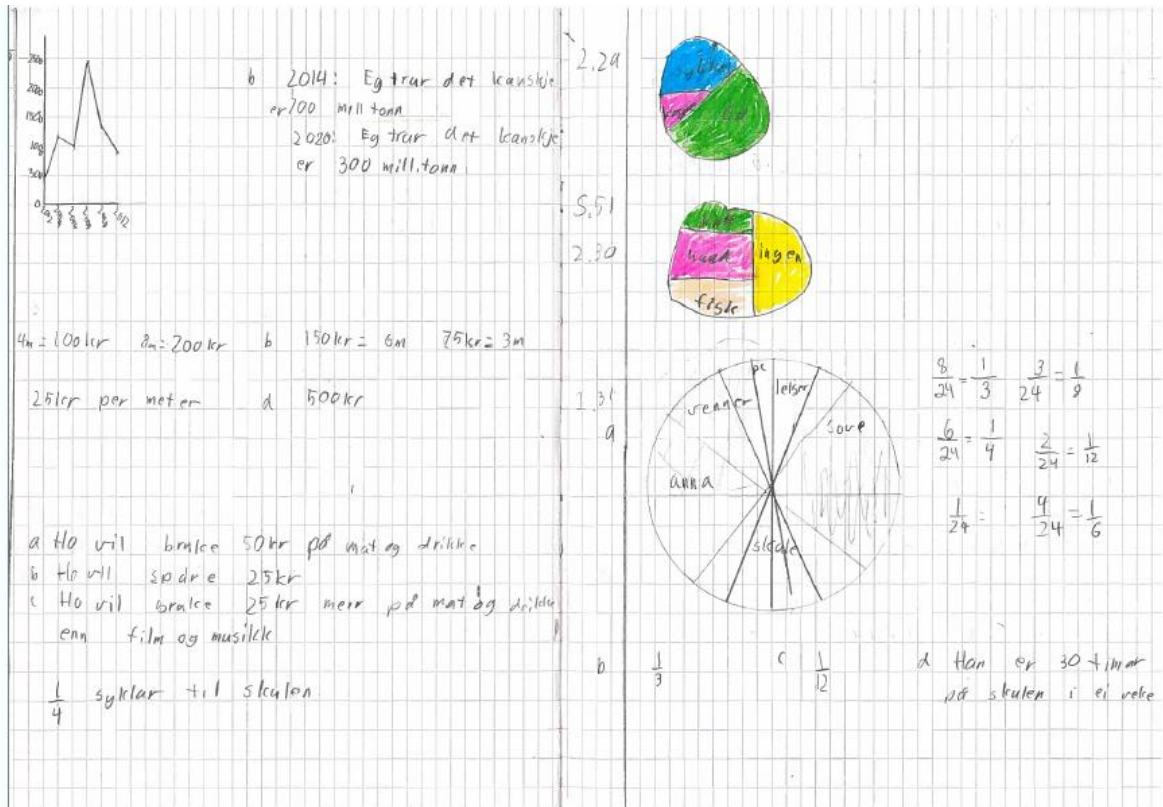 2500
2000
1500
1000
500
0
2012
b 2014: Eg trur det kanskje
er 700 mill tonn
2020: Eg trur det kanskje
er 300 mill.tonn
4m=100kr 8m=200kr b 150kr= 6m 75kr= 3m
25kr per meter d 500kr
a Ho vil bruke 50kr på mat og drikke
b Ho vil spare 25kr
c Ho vil bruke 25kr merr på mat og drikke
enn film og musikk
1/4 syklar til skulen
2.29
sykkel
S.51
2.30
katt
hund
ingen
fisk
1.31
a
pc
lekser
venner
sove
anna
skule
8/24 = 1/3 3/24 = 1/8
6/24 = 1/4 2/24 = 1/12
1/24 = 4/24 = 1/6
b 1/3 c 1/12 d Han er 30 timar
på skulen i ei veke